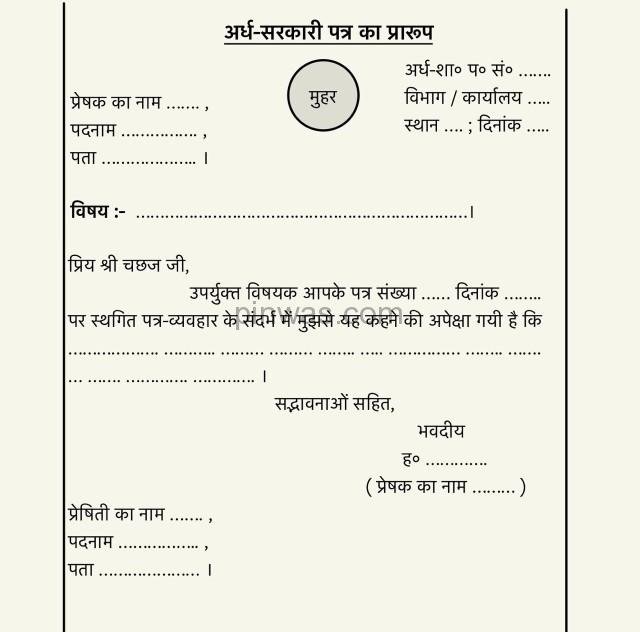 अर्ध-सरकारी पत्र का प्रारूप
अर्ध-शा० प० सं० .......
प्रेषक का नाम ....... ,
मुहर
विभाग / कार्यालय .....
पदनाम ................ ,
स्थान .... ; दिनांक .....
पता .................... ।
विषय :- .....................................................................।
प्रिय श्री चछज जी,
उपर्युक्त विषयक आपके पत्र संख्या ...... दिनांक ........
पर स्थगित पत्र-व्यवहार के संदर्भ में मुझसे यह कहने की अपेक्षा गयी है कि
pinwas.com
................... ........... ......... ......... ........ ..... ............... ........ .......
... ....... ............. ............. ।
सद्भावनाओं सहित,
भवदीय
ह० .............
( प्रेषक का नाम ......... )
प्रेषिती का नाम ....... ,
पदनाम ................. ,
पता ..................... ।